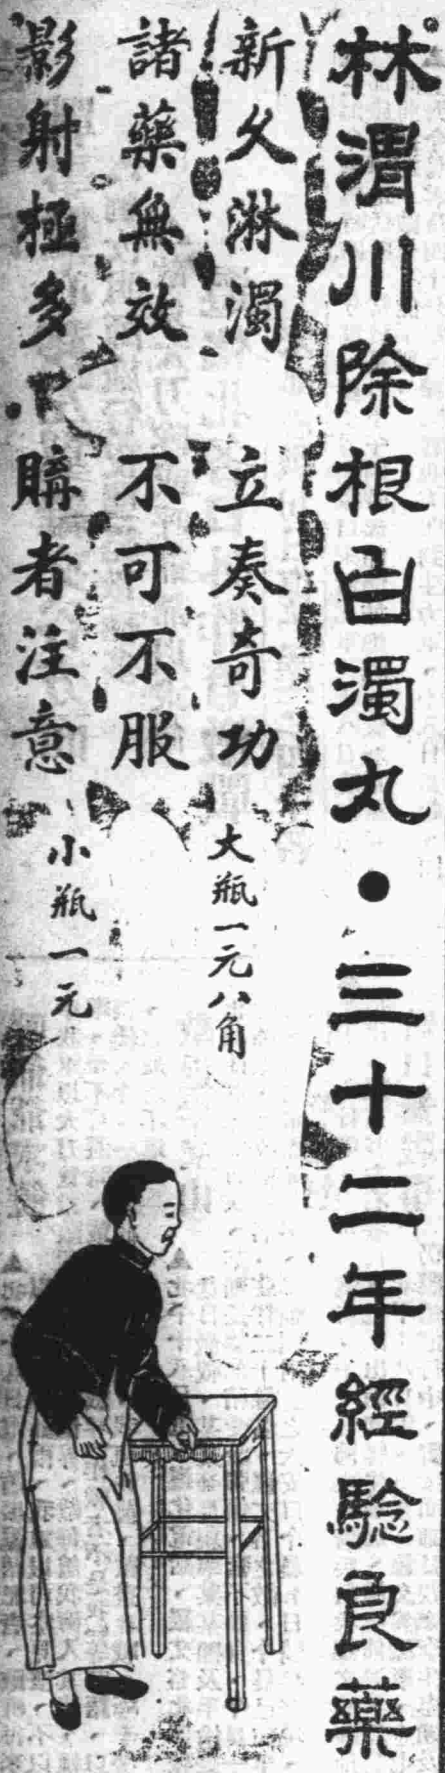 林渭川除根白濁丸•三十二年經驗良藥
新久淋濁　立奏奇功
大瓶一元八角
諸藥無效　不可不服
影射極多　購者注意
小瓶一元